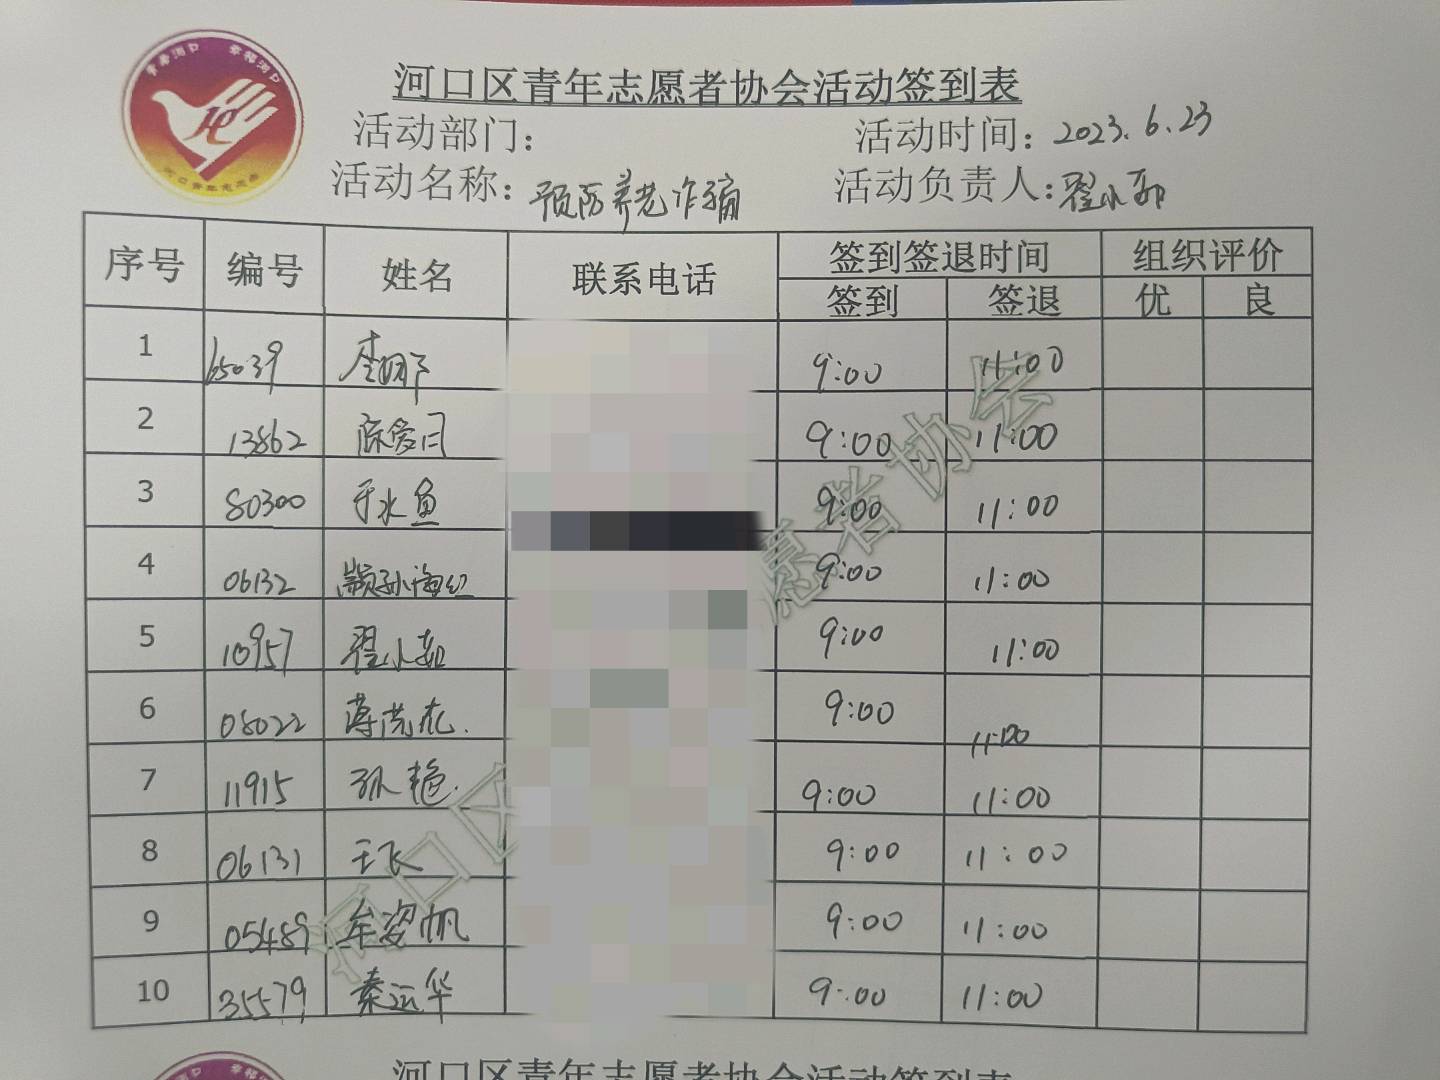 青春河口 幸福河口
河口青年志愿者
河口区青年志愿者协会活动签到表
活动部门：
活动时间：2023.6.23
活动名称：预防养老诈骗
活动负责人：翟小茹
序号 编号 姓名 联系电话 签到签退时间 组织评价
签到 签退 优 良
1 65039 9:00 11:00
2 13862 陈爱闩 9:00 11:00
3 80300 于水鱼 9:00 11:00
4 06132 颛孙海红 9:00 11:00
5 10957 翟小茹 9:00 11:00
6 08022 薄 9:00 11:00
7 11915 孙艳 9:00 11:00
8 06131 王飞 9:00 11:00
9 05489 牟姿帆 9:00 11:00
10 35579 秦运华 9:00 11:00
河口区 愿者协会
河口区青年志愿者协会活动签到表